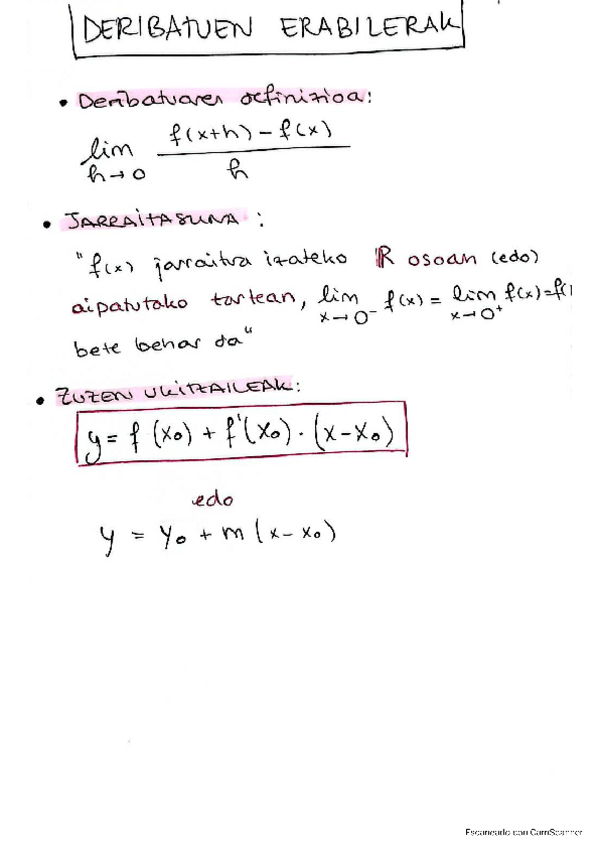 DERIBATUEN ERABILERAK
• Deribatuaren definizioa:
lim h→0 f(x+h) - f(x) / h
• JARRAITASUNA :
"f(x) jarraitua izateko ℝ osoan (edo)
aipatutako tartean, lim x→0⁻ f(x) = lim x→0⁺ f(x) = f(
bete behar da"
• ZUZEN UKITZAILEAK:
y = f(x₀) + f'(x₀) · (x-x₀)
edo
y = y₀ + m (x - x₀)
Escaneado con CamScanner